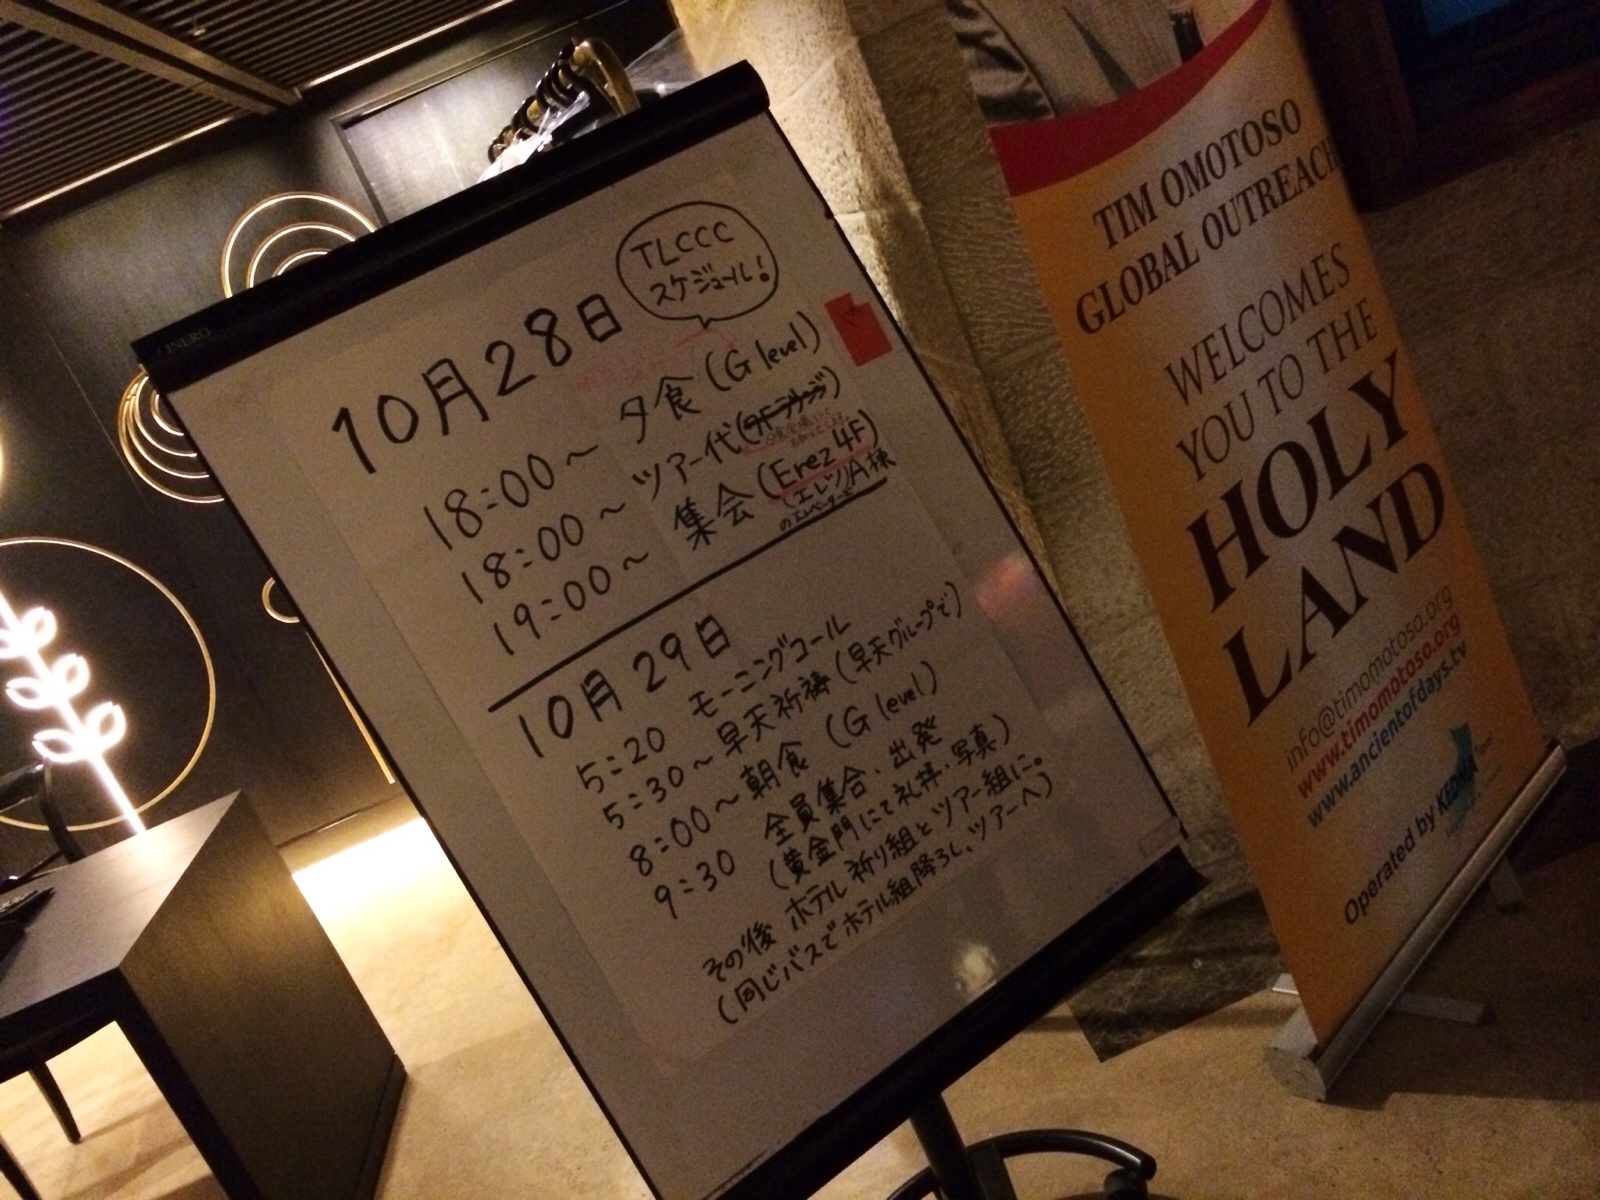 TLCCC
スケジュール!
10月28日
18:00〜 夕食(G level)
18:00〜 ツアー代(7Fラウンジ)
19:00〜 集会(Erez 4F)
(エレツ)A棟
のエレベーターで
10月29日
5:20 モーニングコール
5:30〜早天祈祷(早天グループで)
8:00〜朝食(G level)
9:30 全員集合・出発
(黄金門にて礼拝・写真)
その後 ホテル祈り組とツアー組に。
(同じバスでホテル組降ろし、ツアーへ)
TIM OMOTOSO
GLOBAL OUTREACH
WELCOMES
YOU TO THE
HOLY
LAND
info@timomotoso.org
www.timomotoso.org
www.ancientofdays.tv
Operated by KEDMA